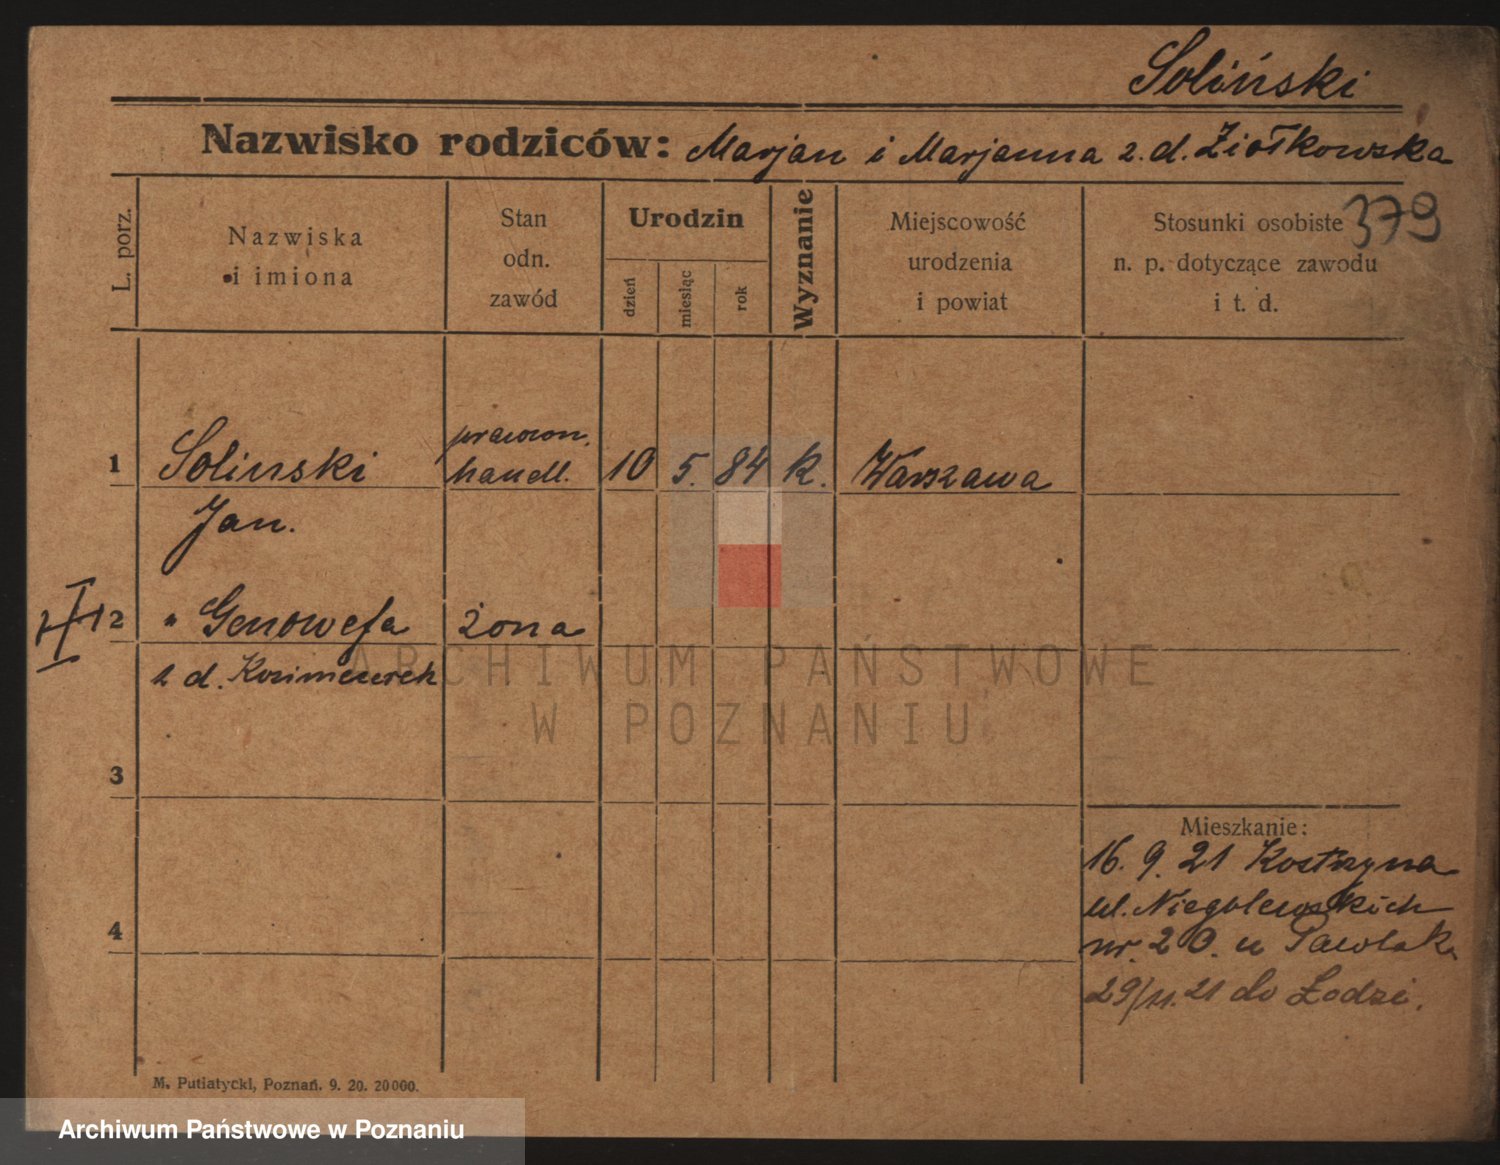 Soliński
Nazwisko rodziców: Marjan i Marjanna z. d. Ziołkowska
379
L. porz.
Nazwiska
i imiona
Stan
odn.
zawód
Urodzin
dzień
miesiąc
rok
Wyznanie
Miejscowość
urodzenia
i powiat
Stosunki osobiste
n. p. dotyczące zawodu
i t. d.
1 Solinski pracown. handl. 10 5. 84 k. Warszawa
Jan.
2 " Genowefa żona
z d.
3
4
Mieszkanie:
16. 9. 21 Kostrzyna
ul. Niegolewskich
nr. 20. u Pawlak
29/11. 21 do Łodzi.
M. Putiatycki, Poznań. 9. 20. 20000.
ARCHIWUM PAŃSTWOWE
W POZNANIU
Archiwum Państwowe w Poznaniu